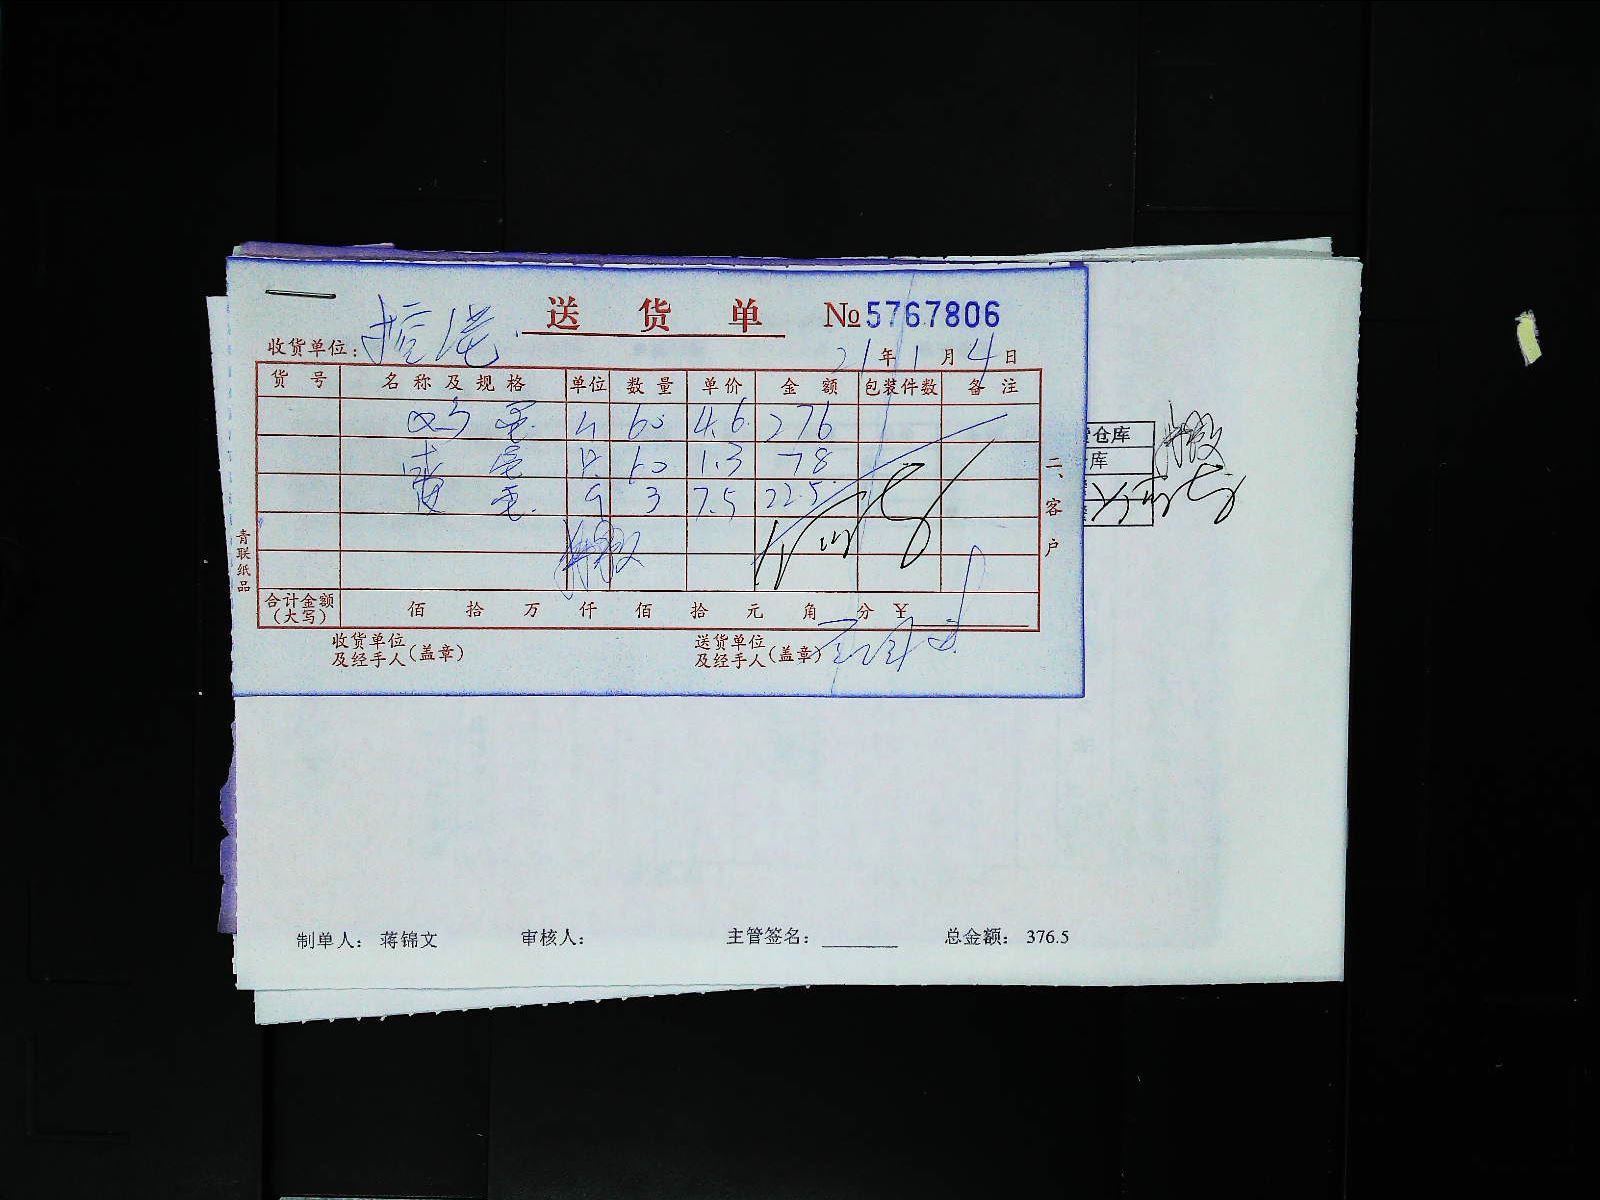 送货单 №5767806
收货单位：
21年1月4日
货号 名称及规格 单位 数量 单价 金额 包装件数 备注
60 4.6 276
60 1.3 78
3 7.5 22.5
合计金额（大写） 佰 拾 万 仟 佰 拾 元 角 分 ¥
收货单位及经手人（盖章）
送货单位及经手人（盖章）
二、客户
青联纸品
仓库
库
制单人： 蒋锦文 审核人： 主管签名： 总金额： 376.5